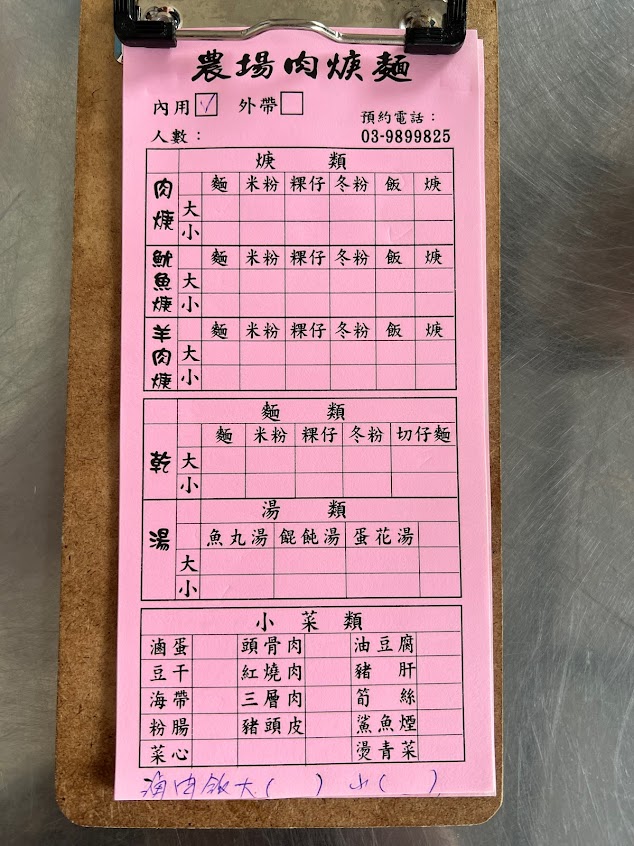 農場肉焿麵
內用☑ 外帶☐
預約電話：
人數： 03-9899825
焿 類
肉焿 麵 米粉 粿仔 冬粉 飯 焿
大
小
魷魚焿 麵 米粉 粿仔 冬粉 飯 焿
大
小
羊肉焿 麵 米粉 粿仔 冬粉 飯 焿
大
小
麵 類
乾 麵 米粉 粿仔 冬粉 切仔麵
大
小
湯 類
湯 魚丸湯 餛飩湯 蛋花湯
大
小
小菜類
滷蛋 頭骨肉 油豆腐
豆干 紅燒肉 豬肝
海帶 三層肉 筍絲
粉腸 豬頭皮 鯊魚煙
菜心 燙青菜
滷肉飯大( ) 小( )